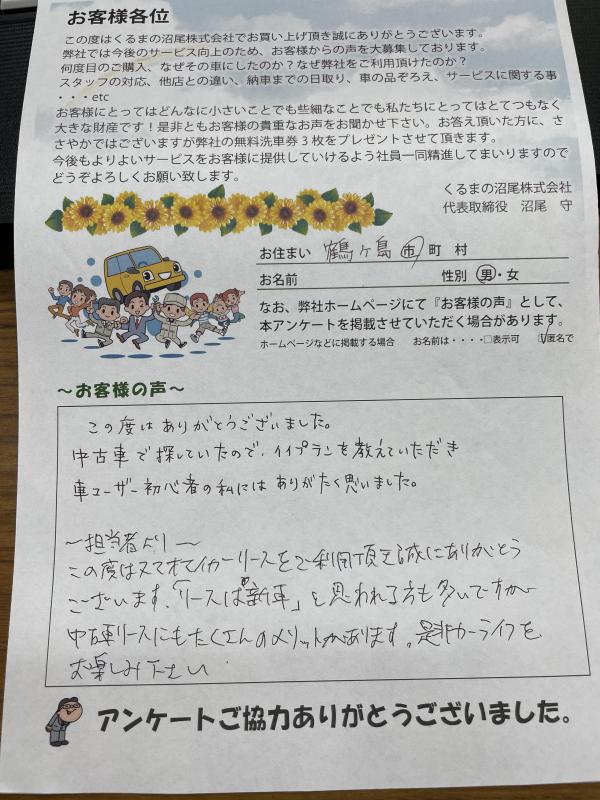 お客様各位
この度はくるまの沼尾株式会社でお買い上げ頂き誠にありがとうございます。
弊社では今後のサービス向上のため、お客様からの声を大募集しております。
何度目のご購入、なぜその車にしたのか？なぜ弊社をご利用頂けたのか？
スタッフの対応、他店との違い、納車までの日取り、車の品ぞろえ、サービスに関する事
・・・etc
お客様にとってはどんなに小さいことでも些細なことでも私たちにとってはとてつもなく
大きな財産です！是非ともお客様の貴重なお声をお聞かせ下さい。お答え頂いた方に、さ
さやかではございますが弊社の無料洗車券３枚をプレゼントさせて頂きます。
今後もよりよいサービスをお客様に提供していけるよう社員一同精進してまいりますので
どうぞよろしくお願い致します。
くるまの沼尾株式会社
代表取締役 沼尾 守
お住まい 鶴ヶ島 市 町 村
お名前 性別 男・女
なお、弊社ホームページにて『お客様の声』として、
本アンケートを掲載させていただく場合があります。
ホームページなどに掲載する場合 お名前は・・・・□表示可 ☑匿名で
～お客様の声～
この度は ありがとうございました。
中古車で探していたので、イイプランを教えていただき
車ユーザー初心者の私には ありがたく思いました。
～担当者より～
この度はスマオてイカーリースをご利用頂き誠にありがとう
ございます。「リースは新車」と思われる方も多いですが
中古車リースにもたくさんのメリットがあります。是非カーライフを
お楽しみ下さい
アンケートご協力ありがとうございました。